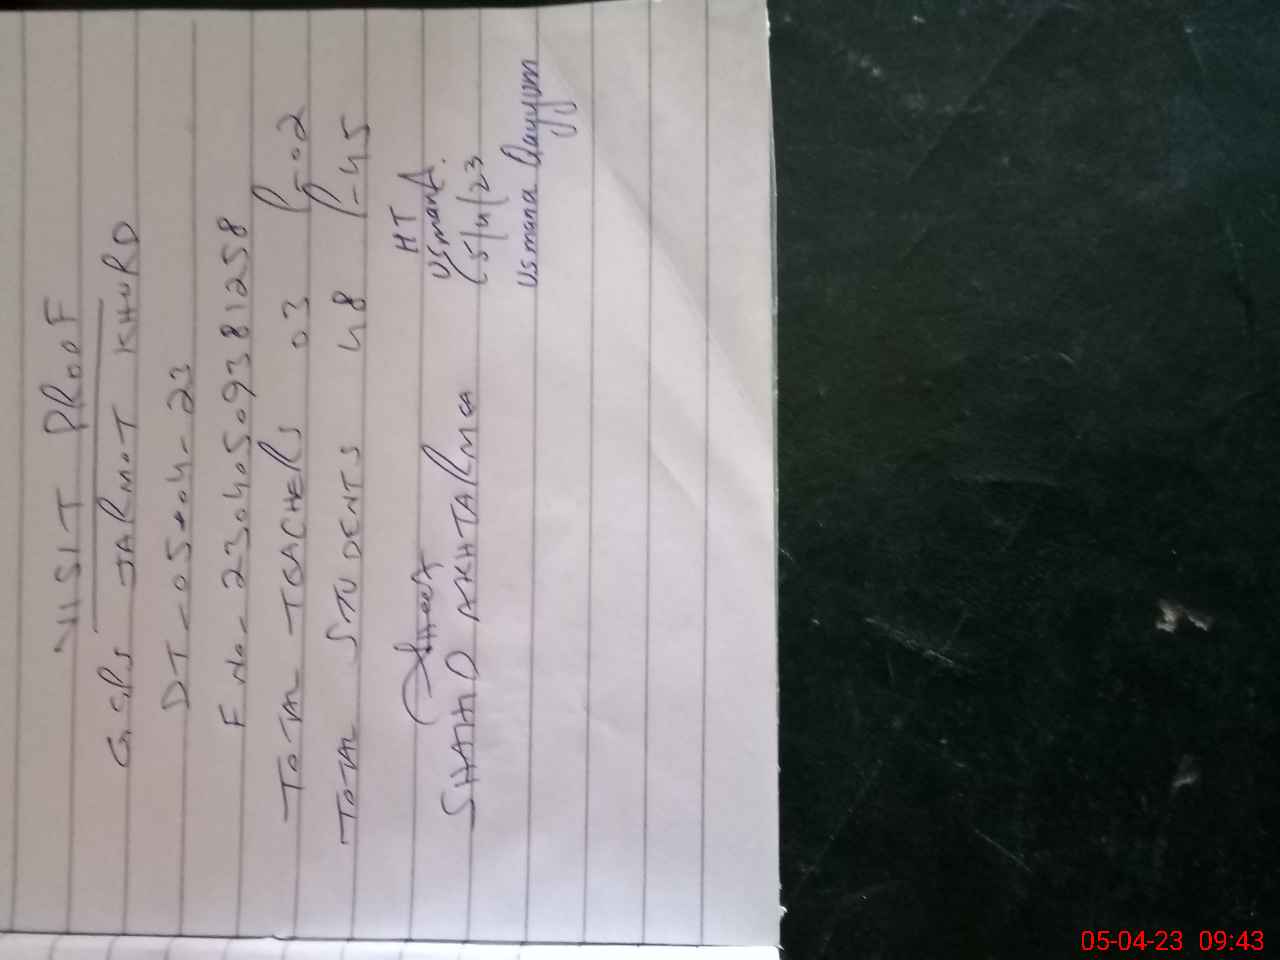 VISIT PROOF
GGPS JARMOT KHURD
DT-05-04-23
F No- 2304050938 1258
TOTAL TEACHERS 03 P-02
TOTAL STUDENTS 48 P-45
HT
UsmanA.
SHAHID AKHTAR MCA 5/4/23
Usmana Qayyum
05-04-23 09:43